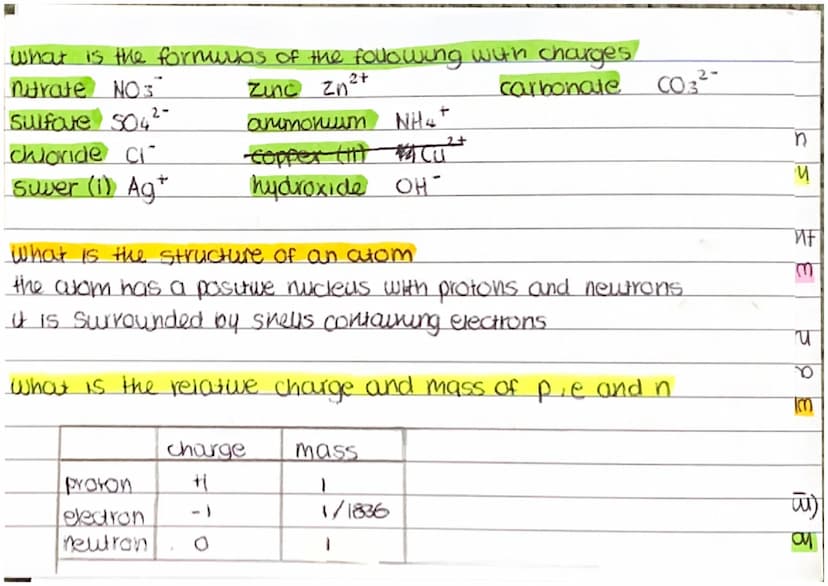 what is the formulas of the following with charges
nitrate NO3⁻ zinc Zn²⁺ carbonate CO3²⁻
sulfate SO4²⁻ ammonium NH4⁺
chloride Cl⁻ copper (II) Cu²⁺
silver (i) Ag⁺ hydroxide OH⁻
what is the structure of an atom
the atom has a positive nucleus with protons and neutrons
it is surrounded by shells containing electrons
what is the relative charge and mass of p,e and n
charge mass
proton +1 1
electron -1 1/1836
neutron 0 1